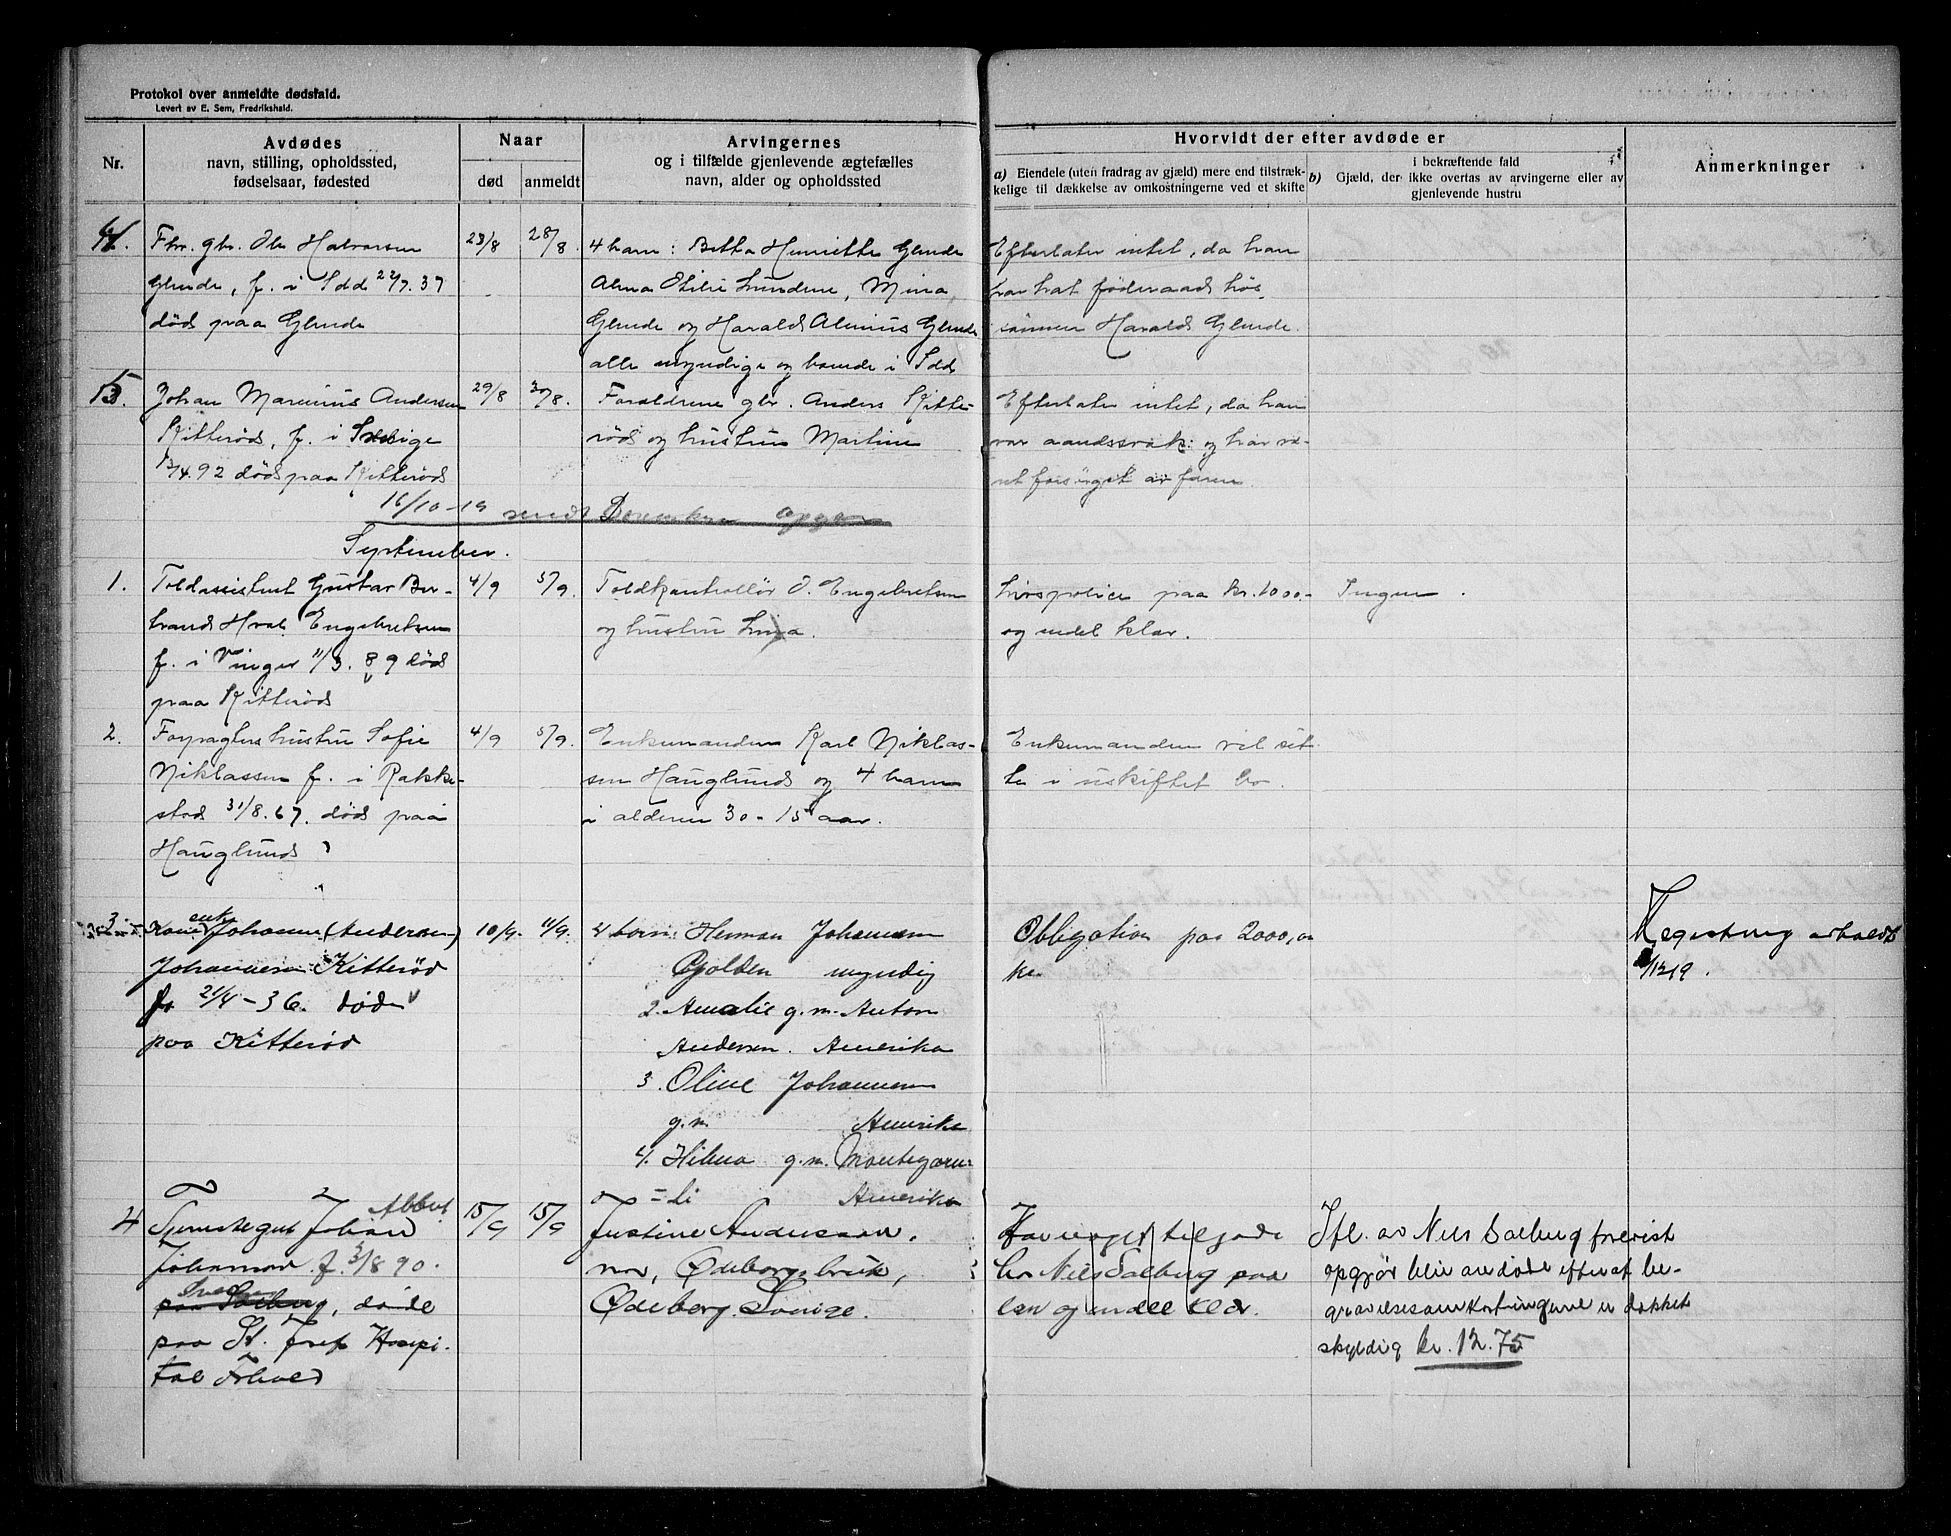 Protokol over anmeldte dødsfald.
Levert av E. Sem, Fredrikshald.
Nr.
Avdødes
navn, stilling, opholdssted,
fødselsaar, fødested
Naar
død
anmeldt
Arvingernes
og i tilfælde gjenlevende ægtefælles
navn, alder og opholdssted
Hvorvidt der efter avdøde er
a) Eiendele (uten fradrag av gjæld) mere end tilstræk-
kelige til dækkelse av omkostningerne ved et skifte
i bekræftende fald
b) Gjæld, der ikke overtas av arvingerne eller av
gjenlevende hustru
Anmerkninger
4.
Fhv. gbr. Ole Halvorsen
Glende, f. i Idd 22/7.37
död paa Glende
23/8
28/8.
4 barn: Betha Henriette Glende
Alma Otilie Lundene, Mina
Glende og Harald Alinius Glende
alle myndige og boende i Idd
Efterlater intet, da han
har hat föderaad hos
sönnen Harald Glende.
5.
Johan Marinius Andersen
Kitteröd, f. i Sverige
13/4.92 död paa Kitteröd
29/8
30/8.
Forældrene gbr. Anders Kitte-
röd og hustru Martine
Efterlater intet, da han
var aandssvak og har væ-
ret forsörget av faren
16/10-19 sendt
September.
1.
Toldassistent Gustav Ber-
trand Hval Engebretsen
f. i Vinger 11/3. 89 död
paa Kitteröd
4/9
5/9.
Toldkontrollör O. Engebretsen
og hustru Lina.
Livspolice paa kr. 1000.-
og endel klær.
Ingen.
2.
Forpagters hustru Sofie
Niklassen f. i Rakke-
stad 31/8.67. död paa
Hauglund
4/9
5/9.
Enkemanden Karl Niklas-
sen Hauglund og 4 barn
i alderen 30-15 aar.
Enkemanden vil sit-
te i uskiftet bo.
3.
enke
Kone Johanne (Andersen)
Johannesen Kitteröd
f. 21/4-36. död
paa Kitteröd
10/9.
11/9.
4 börn: Herman Johannesen
myndig
2. Amalie g.m. Anton
Andersen. Amerika
3. Oline Johannesen
g.m. Amerika
4. Hilma g.m.
Amerika
Obligation paa 2000,00
kr.
Registrering avholdt
/12 19.
4
Albert
Tjenstegut Johan
Johanson f. 3/8 90.
paa Solberg, døde
paa St. Josef Hospi-
tal Frhald
15/9
15/9
Justine Andersson,
mor, Ødeborgsbruk,
Ødeborg Sverige.
Har noget tilgode
hos Nils Solberg paa
løn og endel klær.
Ifl. av Nils Solberg forevist
opgjør blir avdøde efterat be-
gravelsesomkostningene er dækket
skyldig kr. 12.75